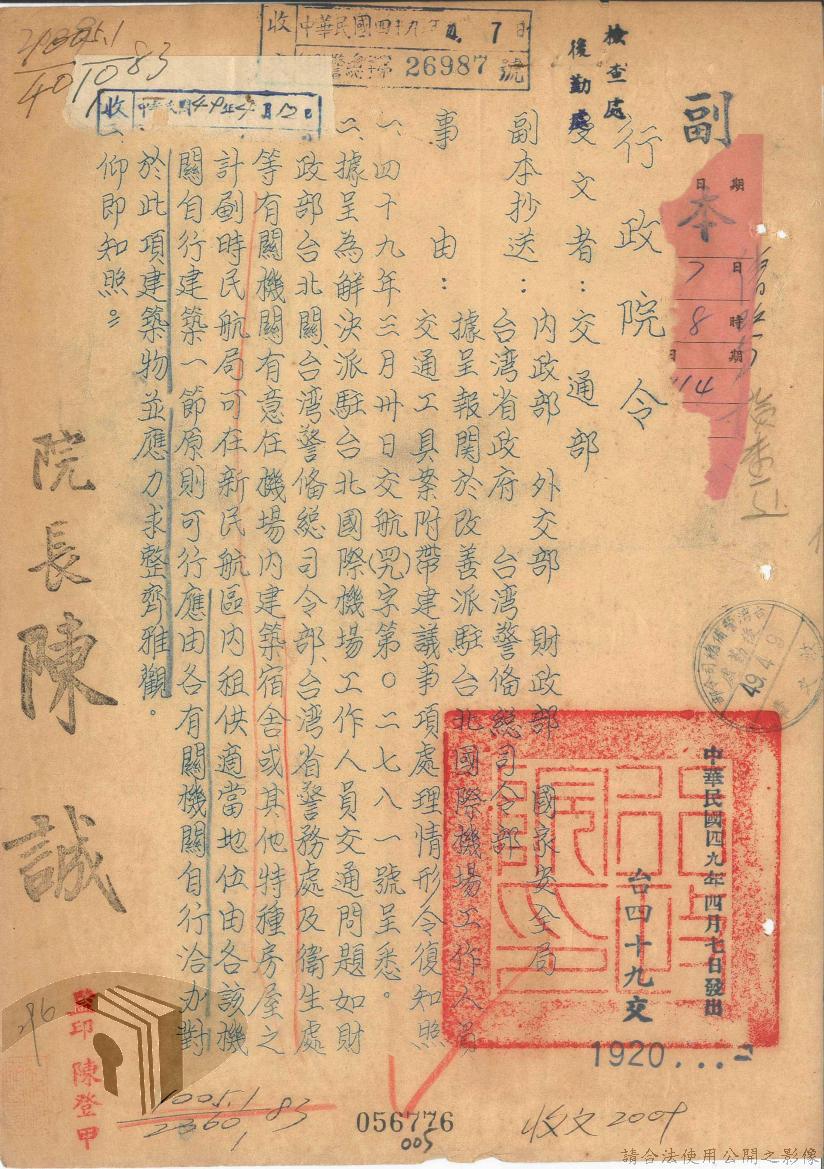 檢查處
後勤處
副本
行政院令
受文者：交通部
副本抄送：內政部　外交部　財政部　國家安全局
台湾省政府　台湾警备總司令部
事由：據呈報關於改善派駐台北國際機場工作人員
交通工具案附帶建議事項處理情形令復知照
一、四十九年三月卅日交航(咒)字第〇二七八一號呈悉。
二、據呈為解決派駐台北國際機場工作人員交通問題如財
政部台北關、台湾警备總司令部、台湾省警務處及衛生處
等有關機關有意在機場內建築宿舍或其他特種房屋之
計劃時民航局可在新民航區內租供適當地位由各該機
關自行建築一節原則可行應由各有關機關自行洽办對
於此項建築物並應力求整齊雅觀。
三、仰即知照。
院長陳誠
監印 陳登甲
中華民國四九年四月七日發出
台四十九交
1920
收 中華民國四十九年 7日
26987 號
收 中華民國49年4月12日
日期
7日
8時
日期
14
49.4.9
收文2009
056776
005
1005.1
2360
1
83
296
請合法使用公開之影像